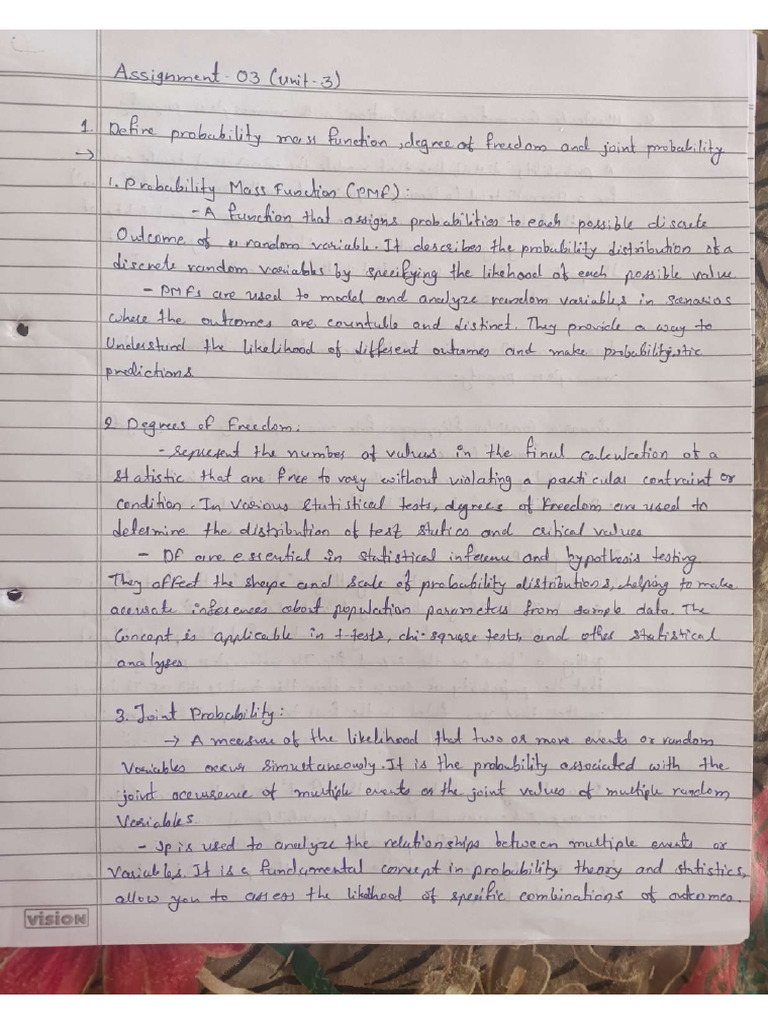 Assignment-03 (Unit-3)
1. Define probability mass function, degree of freedom and joint probability
→
1. Probability Mass Function (PMF):
- A function that assigns probabilities to each possible discrete
Outcome of a random variable. It describes the probability distribution of a
discrete random variables by specifying the likehood of each possible value
- PMFs are used to model and analyze random variables in scenarios
where the outcomes are countable and distinct. They provide a way to
Understand the likelihood of different outcomes and make probabilistic
predictions
2 Degrees of Freedom:
- represent the number of values in the final calculation of a
statistic that are free to vary without violating a particular contraint or
condition. In various statistical tests, degrees of freedom are used to
determine the distribution of test statics and critical values
- DF are essential in statistical inference and hypothesis testing.
They affect the shape and scale of probability distributions, helping to make
accurate inferences about population parameters from sample data. The
Concept is applicable in t-tests, chi-square tests, and other statistical
analyses
3. Joint Probability:
→ A measure of the likelihood that two or more events or random
Variables occur simultaneously. It is the probability associated with the
joint occurence of multiple events or the joint values of multiple random
Variables.
- Jp is used to analyze the relationships between multiple events or
Variables. It is a fundamental concept in probability theory and statistics,
allow you to assess the likelihood of specific combinations of outcomes.
VISION